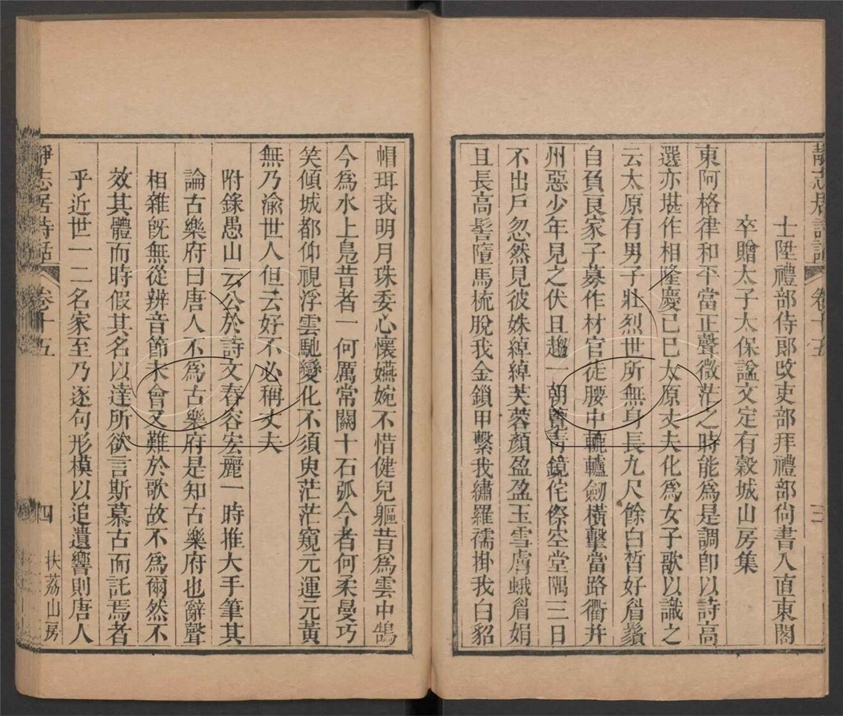 士陞禮部侍郎改吏部拜禮部尙書入直東閣
卒贈太子太保諡文定有穀城山房集
東阿格律和平當正聲微茫之時能爲是調卽以詩高
選亦堪作相隆慶己巳太原丈夫化爲女子歌以識之
云太原有男子壯烈世所無身長九尺餘白晳好眉鬚
自負良家子募作材官徒腰中轆轤劒橫擊當路衢幷
州惡少年見之伏且趨一朝覽靑鏡侘傺空堂隅三日
不出戶忽然見彼姝綽綽芙蓉顏盈盈玉雪膚蛾眉娟
且長高髻墮馬梳脫我金鎖甲繫我繡羅襦掛我白貂
帽珥我明月珠委心懷嬿婉不惜健兒軀昔爲雲中鵠
今爲水上鳧昔者一何厲常關十石弧今者何柔曼巧
笑傾城都仰視浮雲馳變化不須臾茫茫窺元運元黃
無乃渝世人但云好不必稱丈夫
附錄愚山云公於詩文舂容宏麗一時推大手筆其
論古樂府曰唐人不爲古樂府是知古樂府也辭聲
相雜旣無從辨音節未會又難於歌故不爲爾然不
效其體而時假其名以達所欲言斯慕古而託焉者
乎近世一二名家至乃逐句形模以追遺響則唐人
靜志居詩話
卷十五
四
扶荔山房
靜志居詩話
卷十五
三